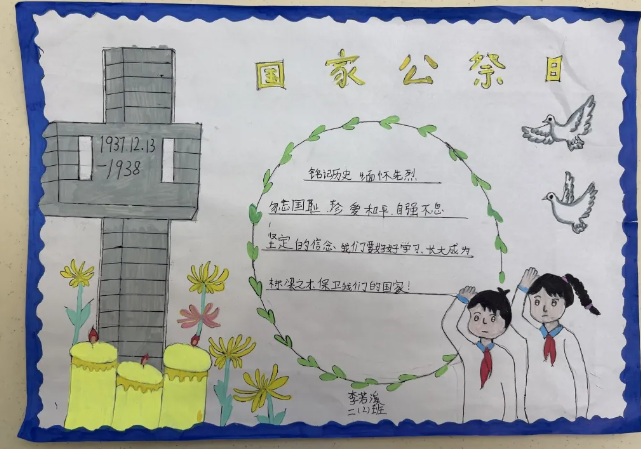 国家公祭日
1937.12.13
-1938
铭记历史 缅怀先烈
勿忘国耻、珍爱和平、自强不息
坚定的信念、我们要好好学习、长大成为
栋梁之才保卫我们的国家!
李若溪
二(2)班